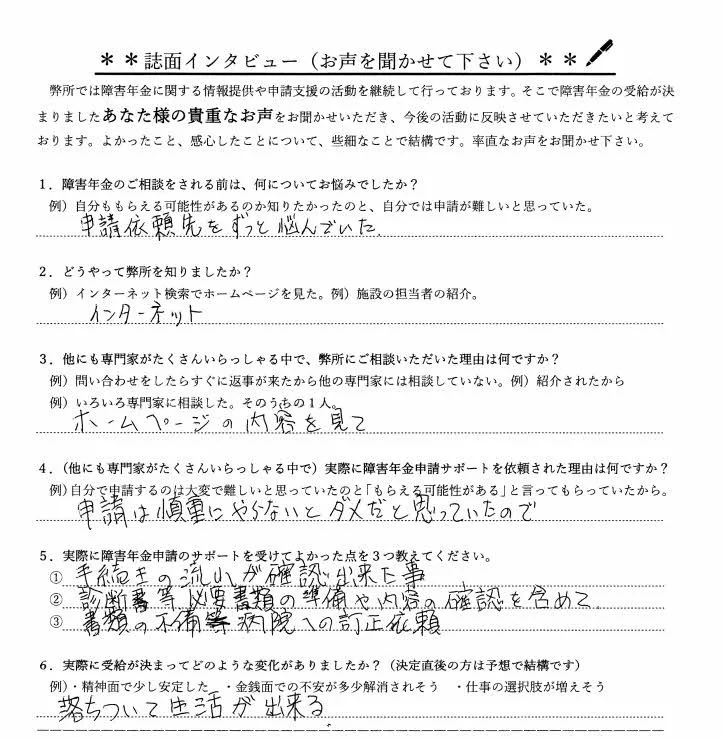 ＊＊誌面インタビュー（お声を聞かせて下さい）＊＊
弊所では障害年金に関する情報提供や申請支援の活動を継続して行っております。そこで障害年金の受給が決
まりましたあなた様の貴重なお声をお聞かせいただき、今後の活動に反映させていただきたいと考えて
おります。よかったこと、感心したことについて、些細なことで結構です。率直なお声をお聞かせ下さい。
1．障害年金のご相談をされる前は、何についてお悩みでしたか？
例）自分ももらえる可能性があるのか知りたかったのと、自分では申請が難しいと思っていた。
申請依頼先をずっと悩んでいた.
2．どうやって弊所を知りましたか？
例）インターネット検索でホームページを見た。例）施設の担当者の紹介。
インターネット
3．他にも専門家がたくさんいらっしゃる中で、弊所にご相談いただいた理由は何ですか？
例）問い合わせをしたらすぐに返事が来たから他の専門家には相談していない。例）紹介されたから
例）いろいろ専門家に相談した。そのうちの1人。
ホームページの内容を見て
4．（他にも専門家がたくさんいらっしゃる中で）実際に障害年金申請サポートを依頼された理由は何ですか？
例）自分で申請するのは大変で難しいと思っていたのと「もらえる可能性がある」と言ってもらっていたから。
申請は慎重にやらないとダメだと思っていたので
5．実際に障害年金申請のサポートを受けてよかった点を3つ教えてください。
① 手続きの流れが確認出来た事
② 診断書等必要書類の準備や内容の確認を含めて.
③ 書類の不備等病院への訂正依頼
6．実際に受給が決まってどのような変化がありましたか？（決定直後の方は予想で結構です）
例）・精神面で少し安定した ・金銭面での不安が多少解消されそう ・仕事の選択肢が増えそう
落ちついて生活が出来る